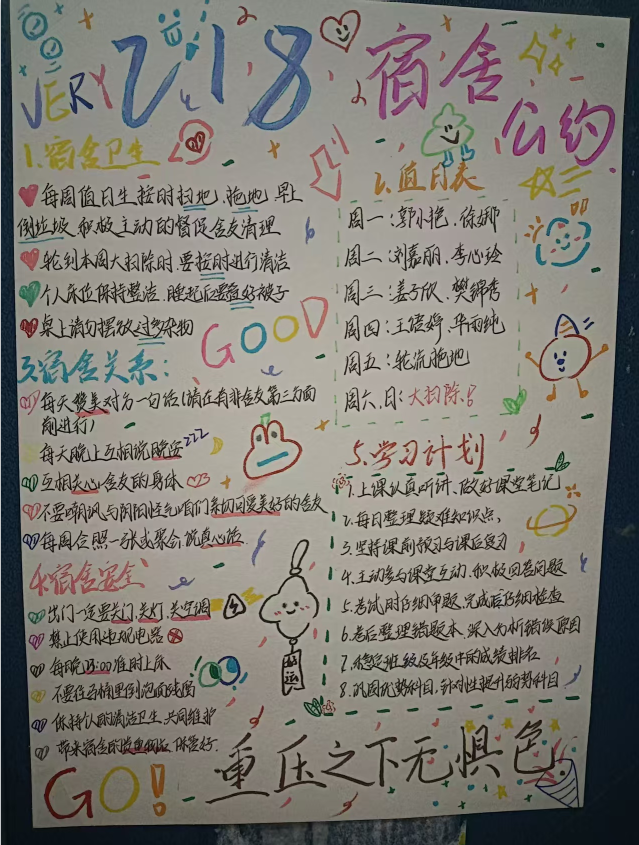 VERY 218 宿舍
公约
1.宿舍卫生
每周值日生按时扫地、拖地、早上
倒垃圾,积极主动的督促舍友清理
轮到本周大扫除时,要按时进行清洁
个人床位保持整洁,睡起后要叠好被子
桌上请勿摆放过多杂物
GOOD
2.值日表
周一:郭小艳、徐娜
周二:刘嘉丽、李心玲
周三:姜子欣、樊锦秀
周四:王语婷、华雨纯
周五:轮流拖地
周六、日:大扫除!
3.宿舍关系:
每天赞美对方一句话(请在有非舍友第三方面
前进行)
每天晚上互相说晚安zzz
互相关心舍友的身体
不要嘲讽与阴阳怪气咱们亲切可爱美好的舍友
每周合照一张或聚会说真心话
4.宿舍安全
出门一定要关门、关灯、关空调
禁止使用违规电器
每晚23:00准时上床
不要在
里倒泡面残渣
保持
的清洁卫生,共同维护
带来宿舍的
GO!
5.学习计划
1.上课认真听讲,做好课堂笔记
2.每日整理疑难知识点,
3.坚持课前预习与课后复习
4.主动参与课堂互动,积极回答问题
5.考试时仔细审题,完成后仔细检查
6.考后整理错题本,深入分析错误原因
7.稳定班级及年级中的成绩排名
8.巩固优势科目,针对性提升弱势科目
重压之下无惧色